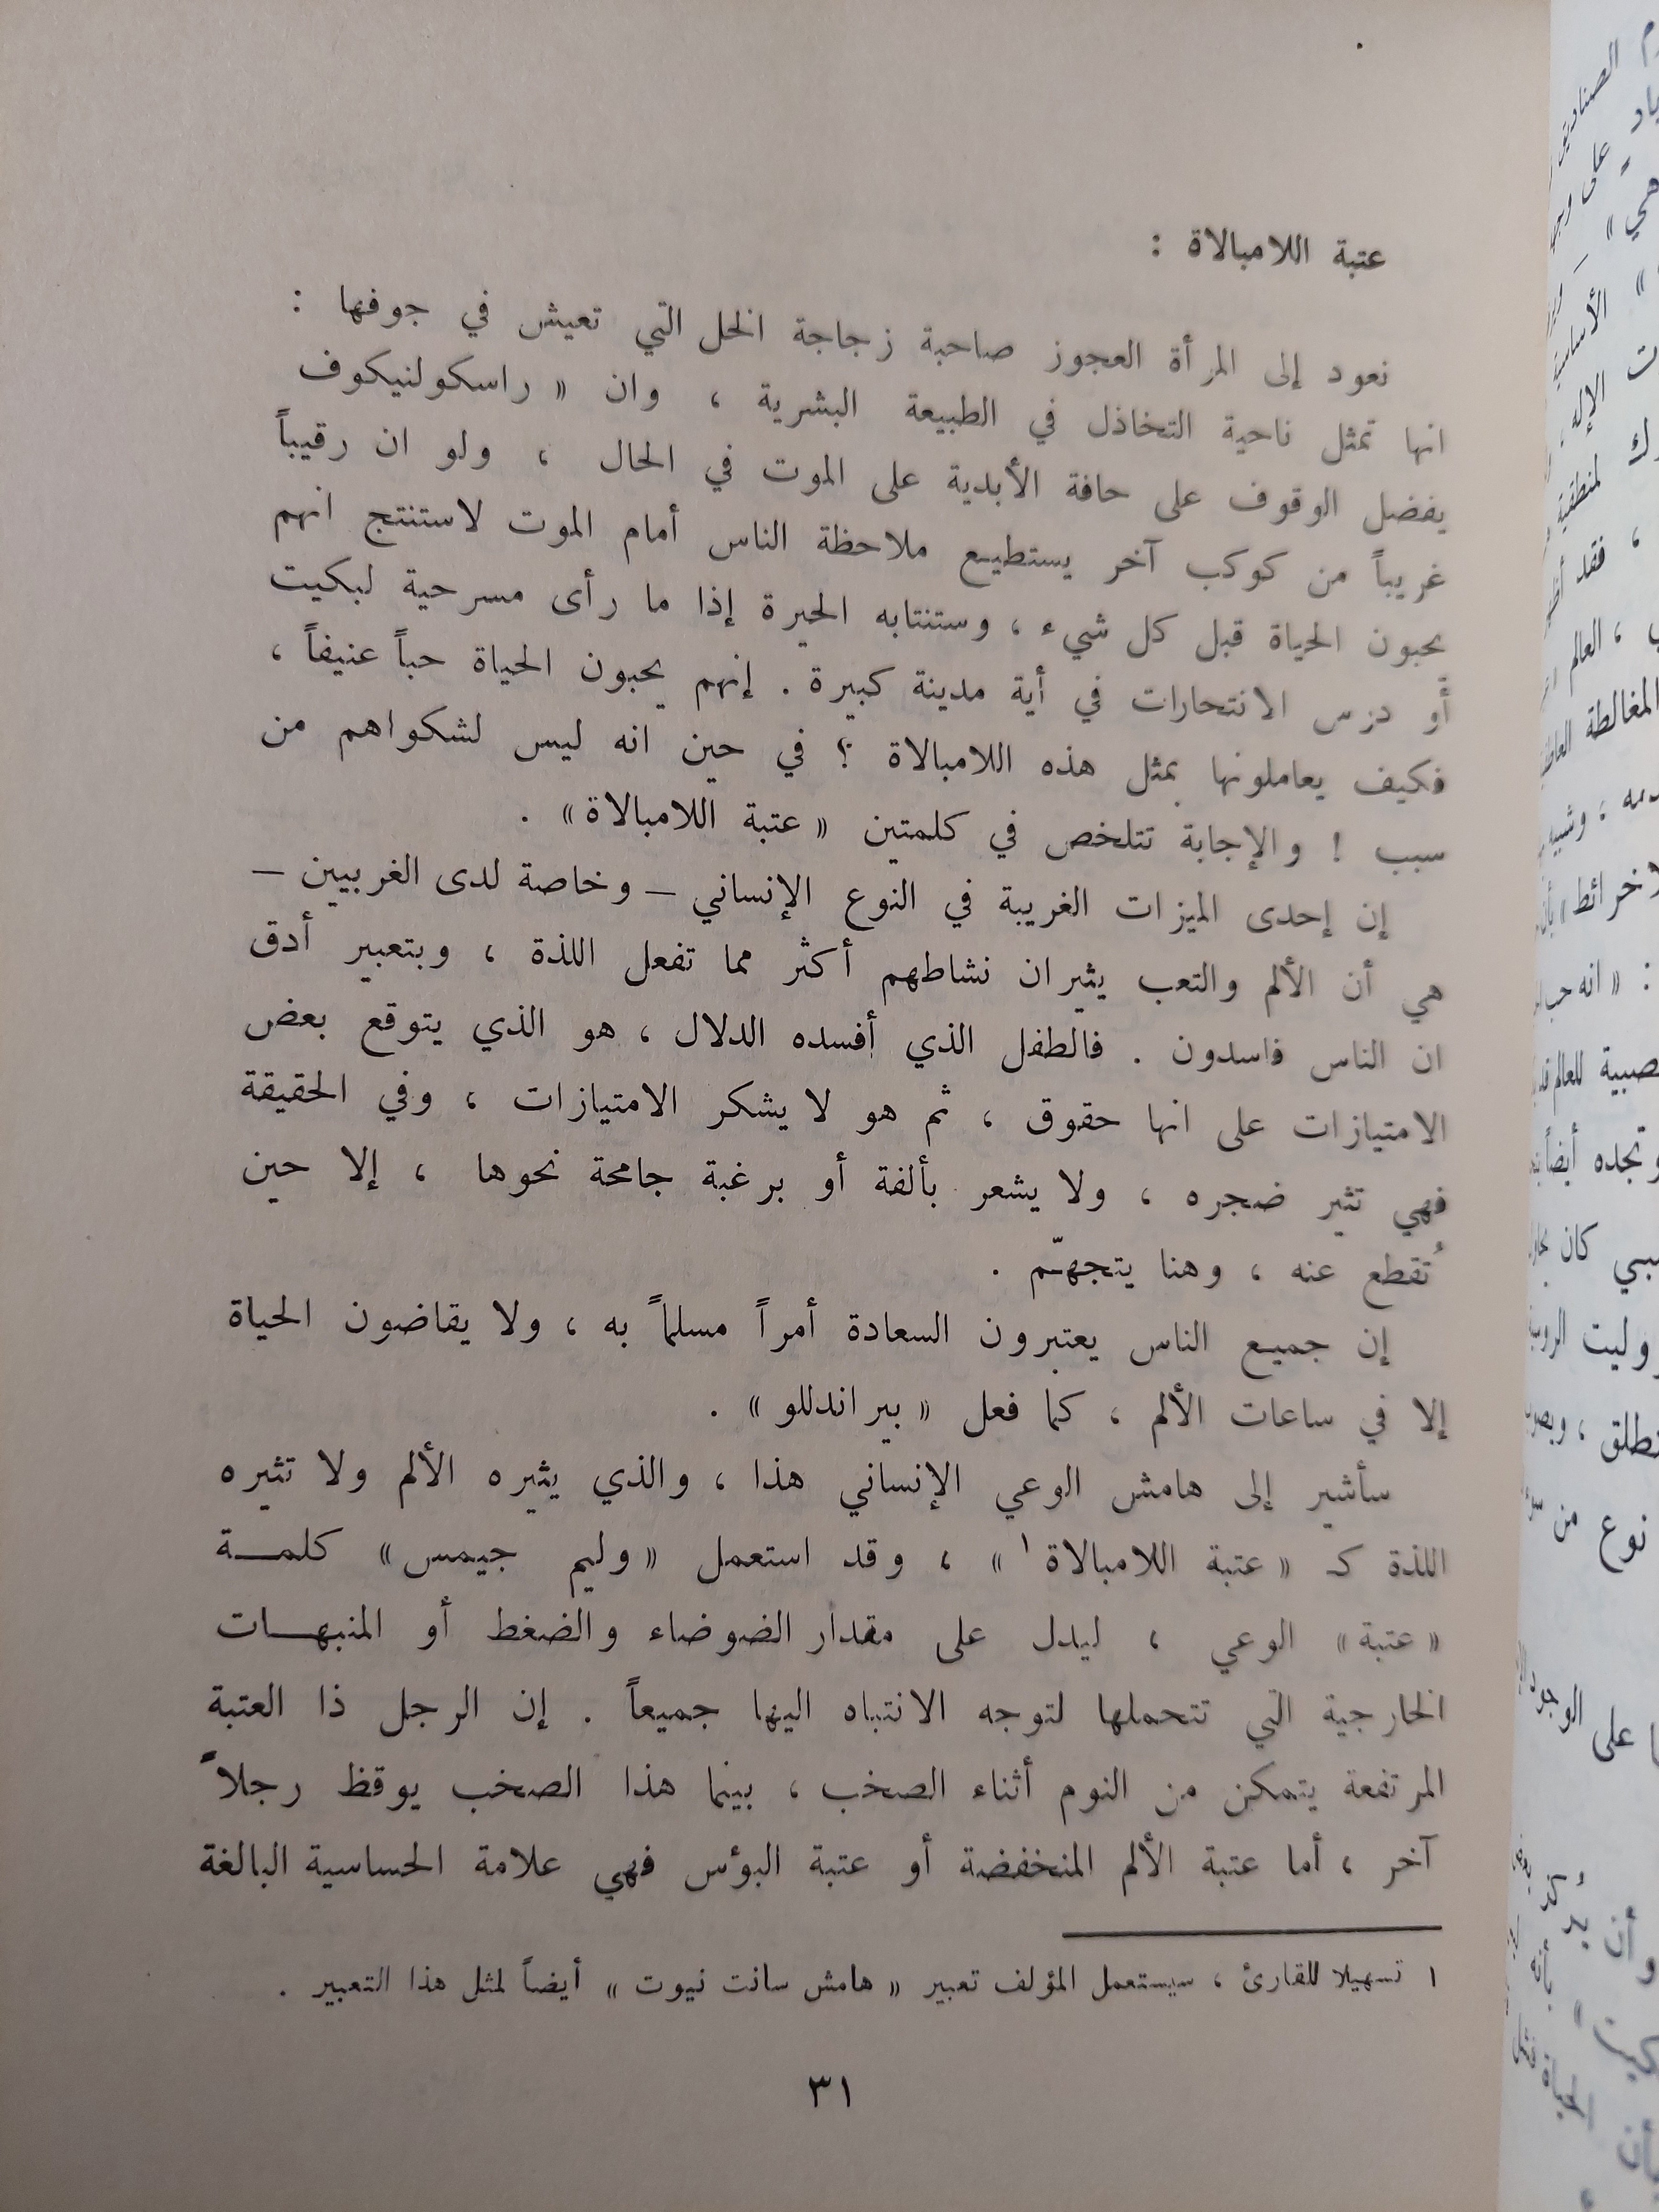 عتبة اللامبالاة :
نعود إلى المرأة العجوز صاحبة زجاجة الخل التي تعيش في جوفها :
انها تمثل ناحية التخاذل في الطبيعة البشرية ، وان « راسكولنيكوف
يفضل الوقوف على حافة الأبدية على الموت في الحال ، ولو ان رقيباً
غريباً من كوكب آخر يستطيع ملاحظة الناس أمام الموت لاستنتج انهم
يحبون الحياة قبل كل شيء ، وستنتابه الحيرة إذا ما رأى مسرحية لبكيت
أو درس الانتحارات في أية مدينة كبيرة . إنهم يحبون الحياة حباً عنيفاً ،
فكيف يعاملونها بمثل هذه اللامبالاة ؟ في حين انه ليس لشكواهم من
سبب ! والإجابة تتلخص في كلمتين « عتبة اللامبالاة » .
إن إحدى الميزات الغريبة في النوع الإنساني – وخاصة لدى الغربيين –
هي أن الألم والتعب يثيران نشاطهم أكثر مما تفعل اللذة ، وبتعبير أدق
ان الناس فاسدون . فالطفل الذي أفسده الدلال ، هو الذي يتوقع بعض
الامتيازات على انها حقوق ، ثم هو لا يشكر الامتيازات ، وفي الحقيقة
فهي تثير ضجره ، ولا يشعر بألفة أو برغبة جامحة نحوها ، إلا حين
تُقطع عنه ، وهنا يتجهّم .
إن جميع الناس يعتبرون السعادة أمراً مسلماً به ، ولا يقاضون الحياة
إلا في ساعات الألم ، كما فعل « بيراندللو » .
سأشير إلى هامش الوعي الإنساني هذا ، والذي يثيره الألم ولا تثيره
اللذة كـ « عتبة اللامبالاة ١ » ، وقد استعمل « وليم جيمس » كلمـــة
« عتبة » الوعي ، ليدل على مقدار الضوضاء والضغط أو المنبهـــات
الخارجية التي تتحملها لتوجه الانتباه اليها جميعاً . إن الرجل ذا العتبة
المرتفعة يتمكن من النوم أثناء الصخب ، بينما هذا الصخب يوقظ رجلاً
آخر ، أما عتبة الألم المنخفضة أو عتبة البؤس فهي علامة الحساسية البالغة
١ تسهيلا للقارئ ، سيستعمل المؤلف تعبير « هامش سانت نيوت » أيضاً لمثل هذا التعبير .
٣١